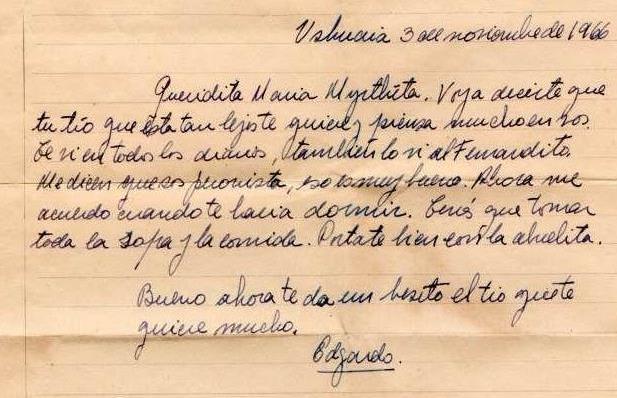 Ushuaia 3 de noviembre de 1966
Queridita Maria Myrthita. Voy a decirte que
tu tio que está tan lejos te quiere y piensa mucho en vos.
Te vi en todos los diarios, también lo vi al Fernandito.
Me dicen que sos peronista, eso es muy bueno. Ahora me
acuerdo cuando te hacia dormir. Tenés que tomar
toda la sopa y la comida. Portate bien con la abuelita.
Bueno ahora te da un besito el tio que te
quiere mucho.
Edgardo.